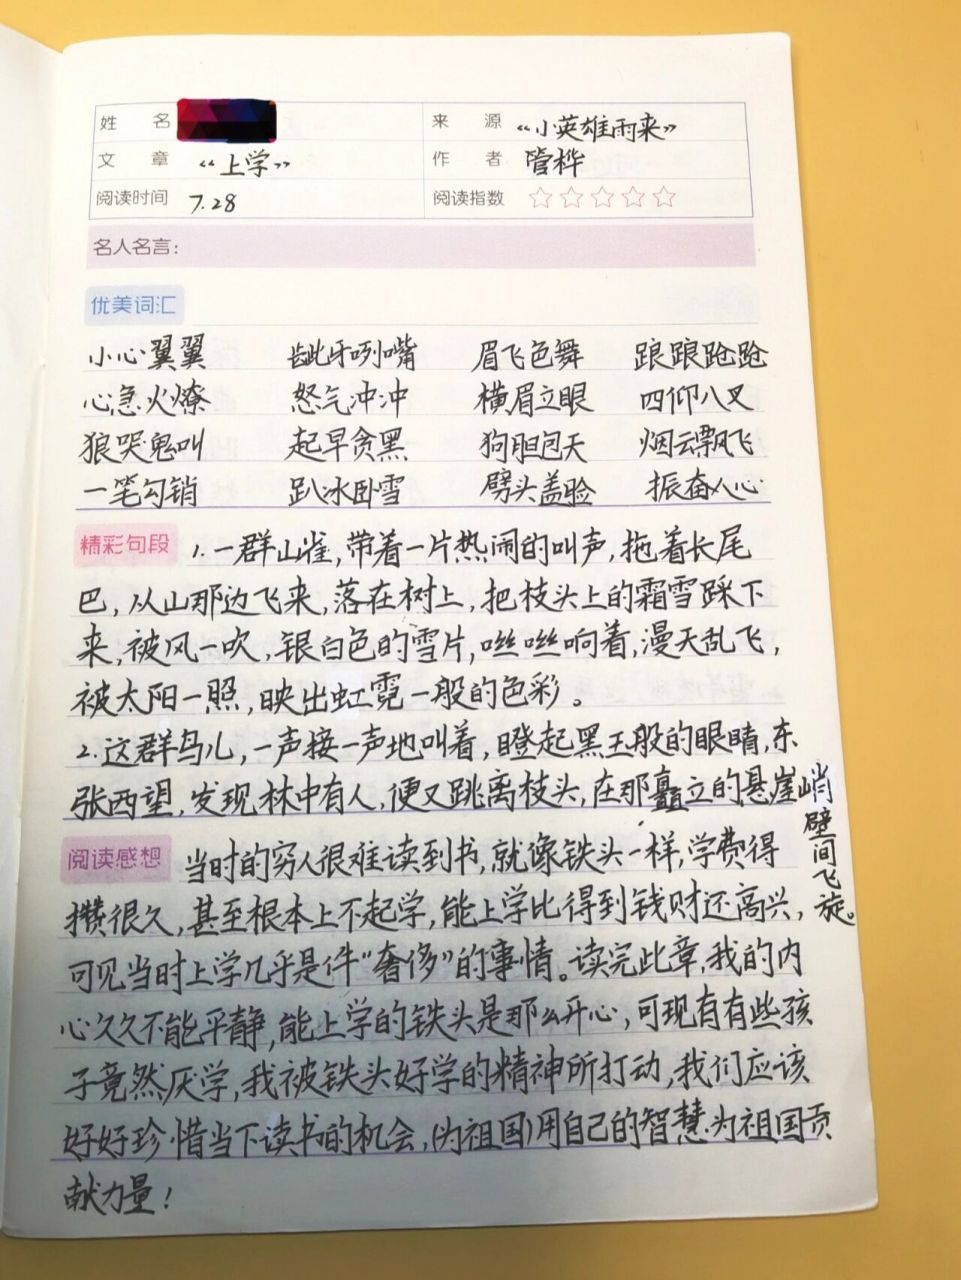 姓 名 来 源 “小英雄雨来”
文 章 “上学” 作 者 管桦
阅读时间 7.28 阅读指数 ☆☆☆☆☆
名人名言：
优美词汇
小心翼翼 龇牙咧嘴 眉飞色舞 踉踉跄跄
心急火燎 怒气冲冲 横眉立眼 四仰八叉
狼哭鬼叫 起早贪黑 狗胆包天 烟云飘飞
一笔勾销 趴冰卧雪 劈头盖脸 振奋人心
精彩句段 1.一群山雀，带着一片热闹的叫声，拖着长尾
巴，从山那边飞来，落在树上，把枝头上的霜雪踩下
来，被风一吹，银白色的雪片，咝咝响着，漫天乱飞，
被太阳一照，映出虹霓一般的色彩。
2.这群鸟儿，一声接一声地叫着，瞪起黑玉般的眼睛，东
张西望，发现林中有人，便又跳离枝头，在那矗立的悬崖峭壁间飞旋。
阅读感想 当时的穷人很难读到书，就像铁头一样，学费得
攒很久，甚至根本上不起学，能上学比得到钱财还高兴，
可见当时上学几乎是件“奢侈”的事情。读完此章，我的内
心久久不能平静，能上学的铁头是那么开心，可现有有些孩
子竟然厌学，我被铁头好学的精神所打动，我们应该
好好珍惜当下读书的机会，(为祖国)用自己的智慧为祖国贡
献力量！